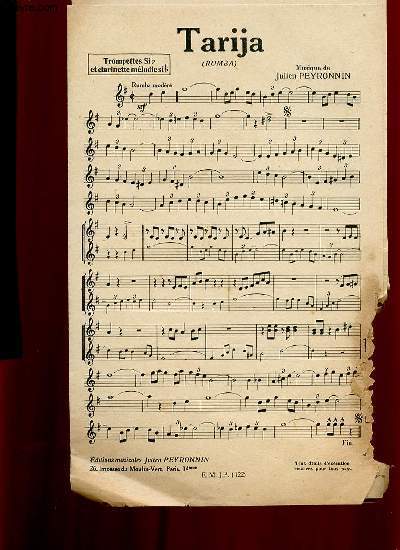 Tarija
(RUMBA)
Trompettes Si♭
et clarinette mélodie si♭
Musique de
Julien PEYRONNIN
Rumba modéré
mf
Fin
Editions musicales Julien PEYRONNIN
26, Impasse du Moulin-Vert, Paris, 14ème
Tous droits d'exécution
réservés pour tous pays.